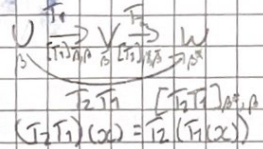 T₁ T₂
U → V → W
β [T₁]β,β β [T₂] β*
T₂T₁ [T₂T₁]β*,β
(T₂T₁)(x) = T₂(T₁(x))